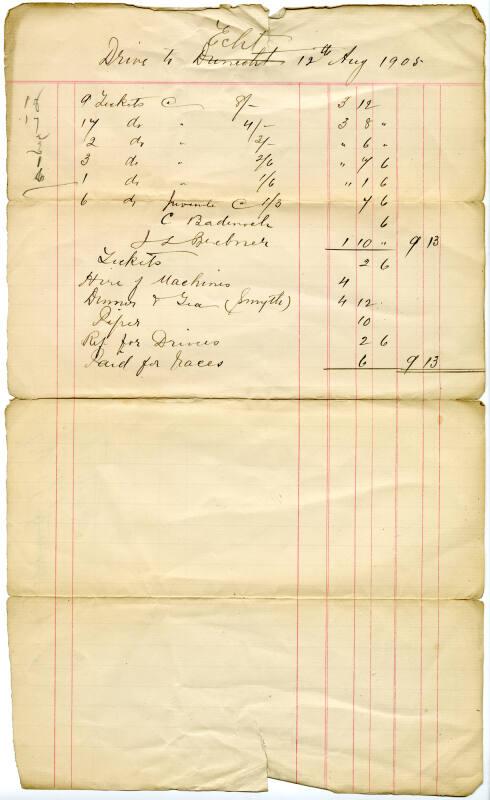 Echt
Drive to Dunecht 12th Aug 1905
9 Tickets @ 8/- 3 12
17 do " 4/- 3 8 "
2 do " 3/- " 6 "
3 do " 2/6 " 7 6
1 do " 1/6 " 1 6
6 do juvenile @ 1/3 7 6
C Badenoch 6
J L Brebner 1 10 " 9 13
Tickets 2 6
Hire of Machines 4
Dinner & Tea (Smyth) 4 12
Piper 10
Ref for Drivers 2 6
Paid for Races 6 9 13